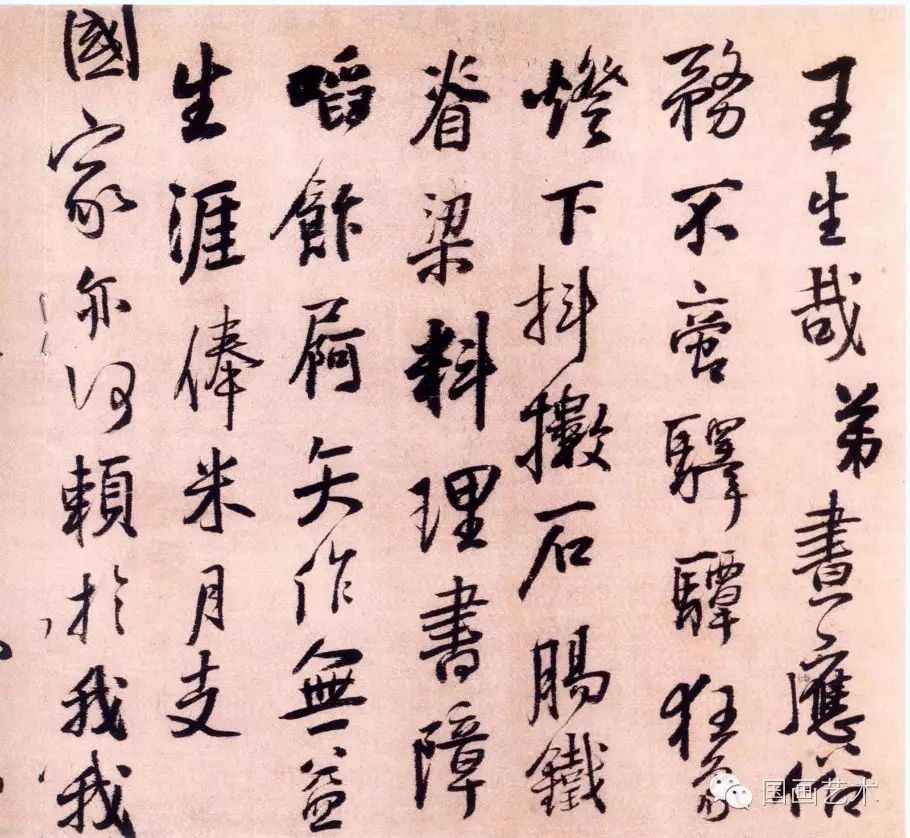 王生哉弟晝應俗
務不啻驛驔狂象
燈下抖擻石腸鐵
脊梁料理書障
啗飰屙矢作無益
生涯俸米月支
國家亦何賴於我我
国画艺术